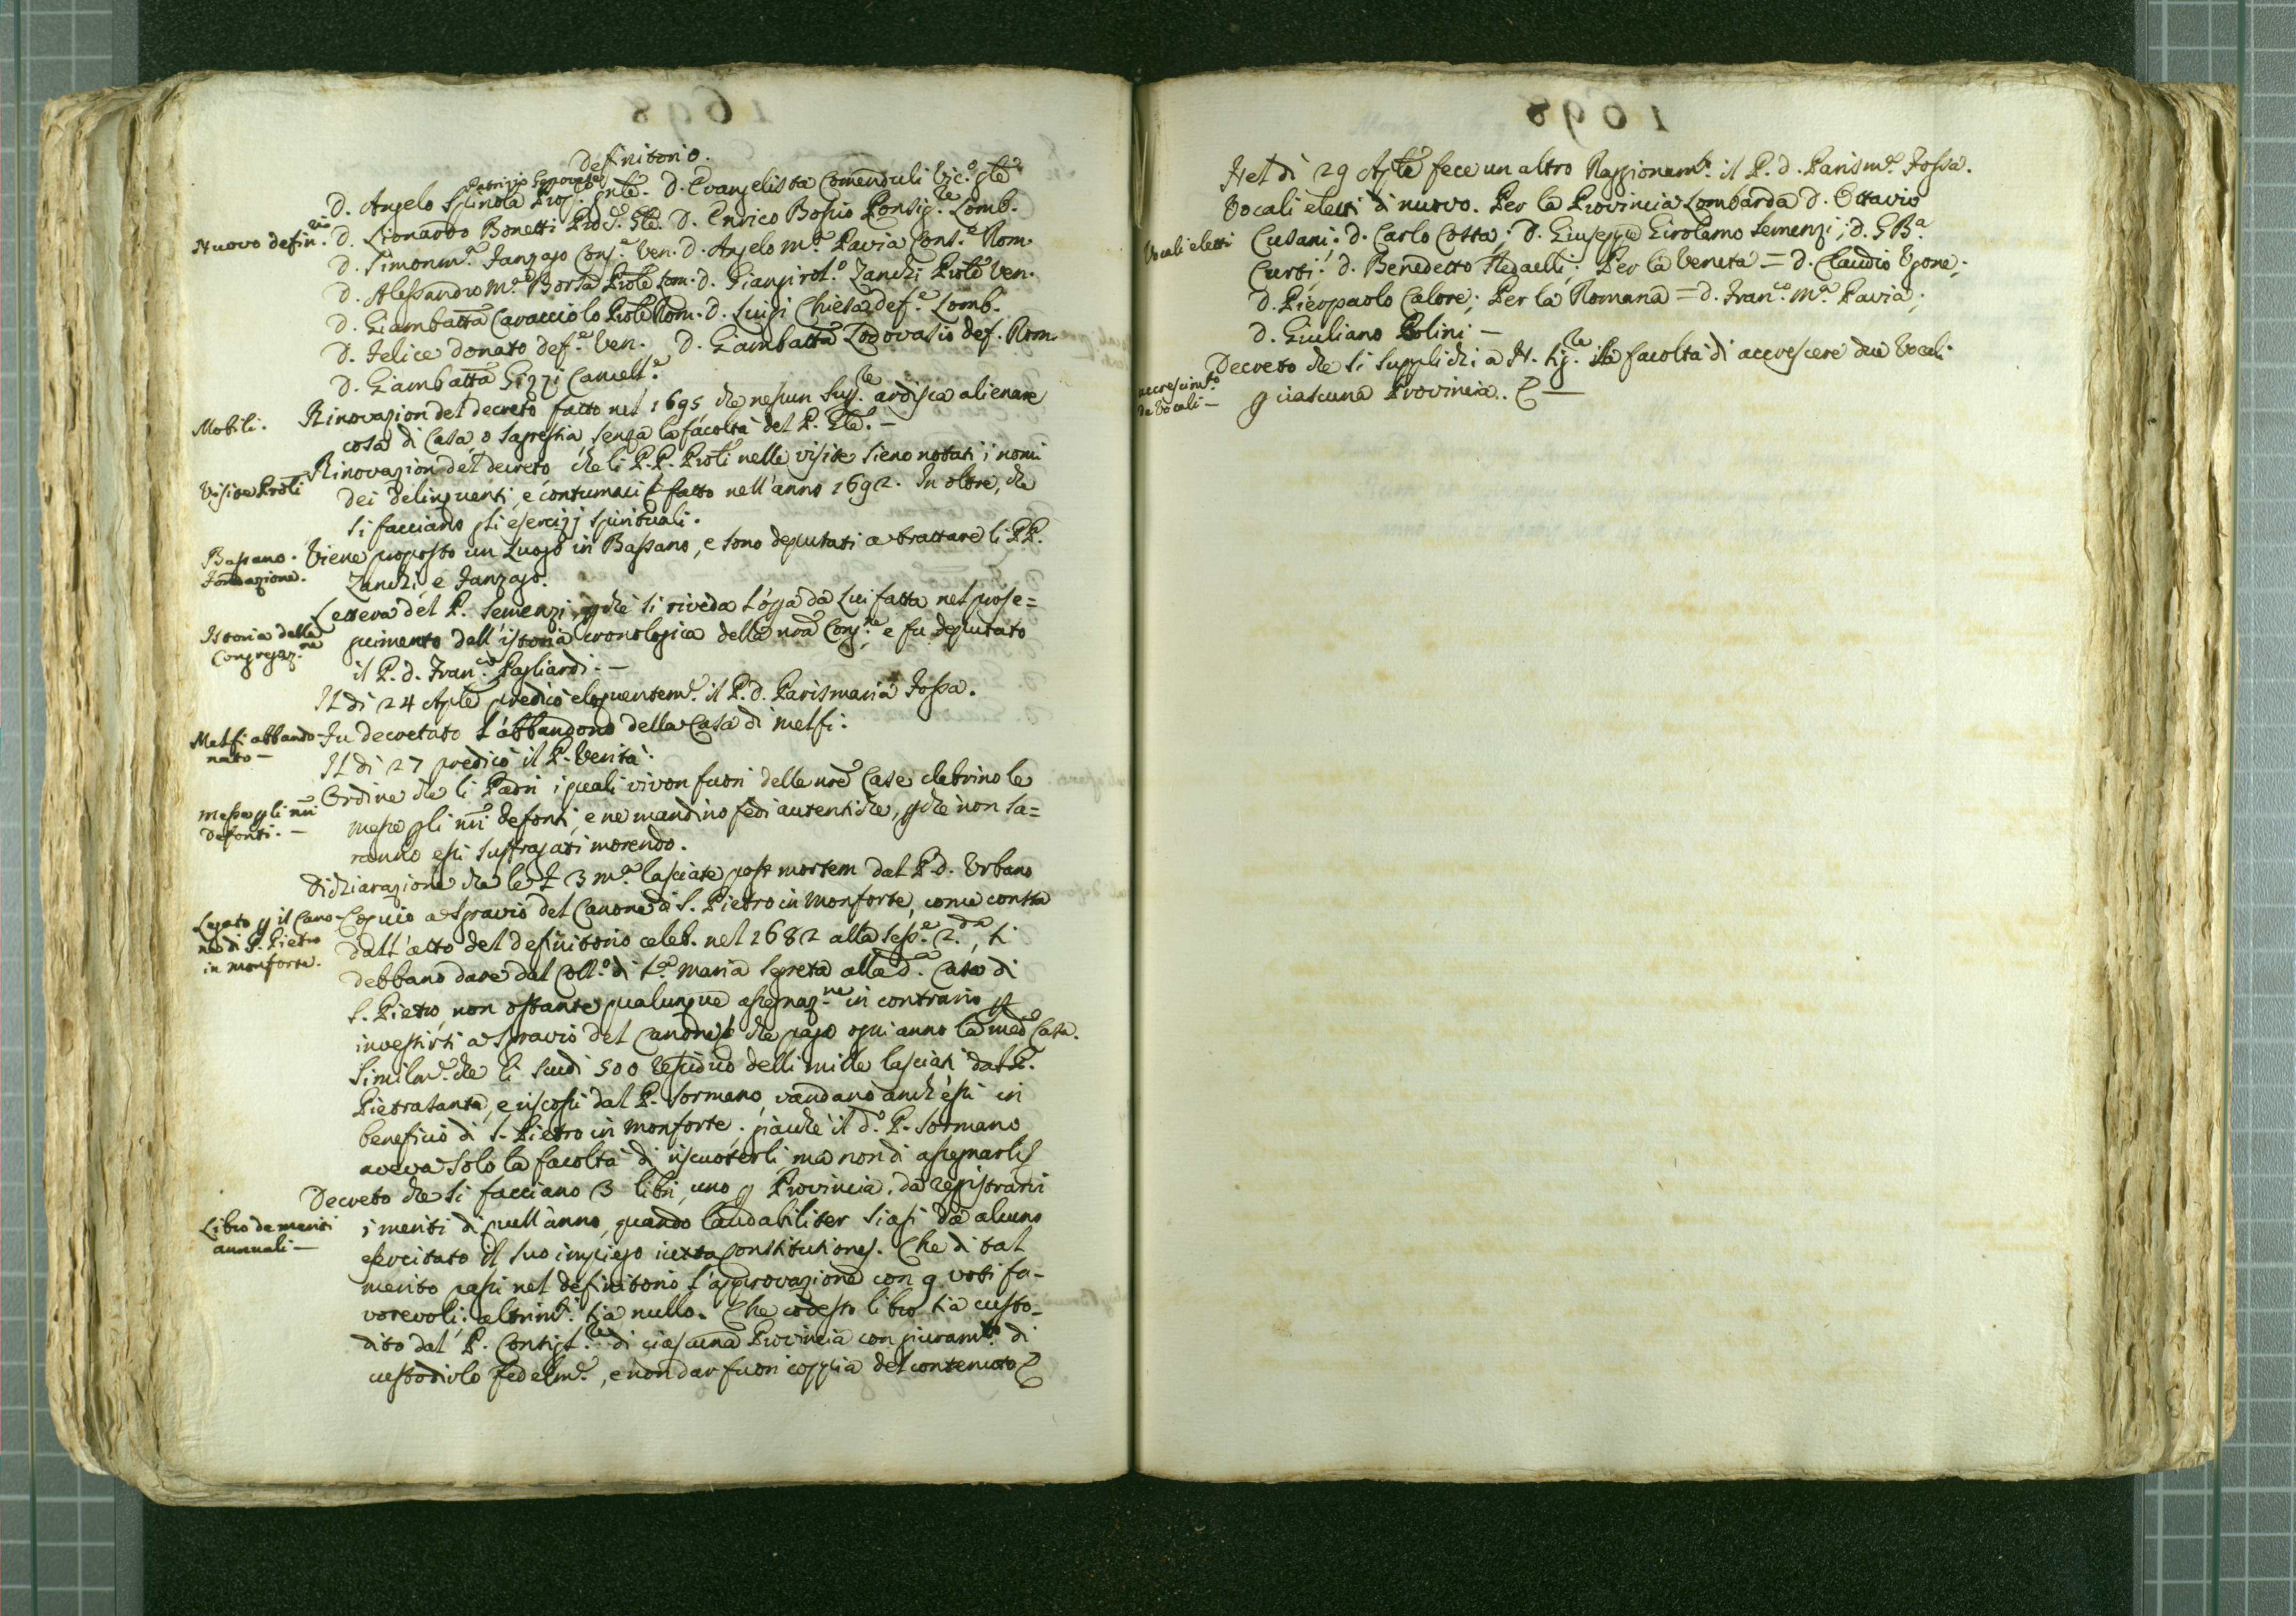 1698
Definitorio.
Patrizio Genovese
D. Angelo Spinola Prep. Gnle. D. Evangelista Comenduli Vic.º Gle
Nuovo defin.rio D. Lionardo Bonetti Proc. Gle. D. Enrico Bossio Consig.re Lomb.
D. Simonm.ª Fanzago Cons.e Ven. D. Angelo m.ª Pavia Cons.e Rom.
D. Alessandro M.ª Borsa Prole Lom. D. Giangirol.º Zanchi Prole Ven.
D. Giambatta Caracciolo Prole Rom. D. Luigi Chiesa def.e Lomb.
D. Felice Donato def.e Ven. D. Giambatta Lodovasio def. Rom.
D. Giambatta Gizzi Cancell.e
Mobili. Rinovazion del decreto fatto nel 1695 che nessun Sup.re ardisca alienare
cosa di Casa, o Sagrestia, senza la facoltà del P. Gle. —
Visite Proli Rinovazion del decreto che li P.P. Proli nelle visite sieno notati i nomi
dei delinquenti, e contumaci fatto nell'anno 1692. In oltre, che
si facciano gli esercizj spirituali.
Bassano. Fondazione. Viene proposto un Luogo in Bassano, e sono deputati a trattare li PP.
Zanchi, e Fanzago.
Istoria della Congregaz.ne Lettera del P. Semenzi, pchè si riveda l'opa da Lui fatta nel prose=
guimento dell'istoria cronologica della nra Cong.ne e fu deputato
il P. d. Fran.co Pagliardi. —
Il dì 24 Aple predicò eloquentem.e il P. D. Parismaria Fossa.
Melfi abbandonato — Fu decretato l'abbandono della Casa di Melfi.
Il dì 27 predicò il P. Verità.
Messe p li nri Defonti. — Ordine che li Padri i quali vivon fuori delle nre Case celebrino le
messe p li nri defonti, e ne mandino fedi autentiche, pchè non sa=
ranno essi suffragati morendo.
Dichiarazione che le £ 3 m.ª lasciate post mortem dal P. D. Urbano
Legato p il Canone di S. Pietro in Monforte. a sgravio del Canone di S. Pietro in Monforte, come consta
dall'atto del definitorio celeb. nel 1682 alla sess.e 2.da, si
debbano dare dal Coll.º di S.ª Maria Segreta alla d.ª Casa di
S. Pietro, non ostante qualunque assegnaz.ne in contrario
investirsi a sgravio del Canone che paga ogni anno la med.ª Casa.
Similm.e che li scudi 500 residuo delli mille lasciati dal P.
Pietrasanta, e riscossi dal P. Sormano, vandano anch'essi in
beneficio di S. Pietro in Monforte; giacchè il d.º P. Sormano
aveva solo la facoltà di riscuoterli, ma non di assegnarli
Decreto che si facciano 3 libri, uno p Provincia, da registrarvi
Libro de meriti annuali — i meriti di quell'anno, quando laudabiliter siasi da alcuno
esercitato il suo impiego iuxta Constitutiones. Che di tal
merito passi nel definitorio l'approvazione con 9 voti fa-
vorevoli; altrim.i sia nullo. Che codesto libro sia custo-
dito dal P. Consigl.re di ciascuna Provincia con giuram.to di
custodirlo fedelm.e, e non dar fuori coppia del contenuto
1698
Nel dì 29 Aple fece un altro Raggionam.to il P. d. Parism.ª Fossa.
Vocali eletti Vocali eletti di nuovo. Per la Provincia Lombarda D. Ottavio
Cusani: D. Carlo Cotta; D. Giuseppe Girolamo Semenzi; D. G Bª
Curti; D. Benedetto Fedaelli; Per la Veneta = D. Claudio Ugone;
D. Pierpaolo Calore; Per la Romana = D. Fran.co M.ª Pavia;
D. Giuliano Polini —
accrescim.to de Vocali — Decreto che si supplichi a N. Sig.re la facoltà di accrescere due Vocali
p ciascuna Provincia. —